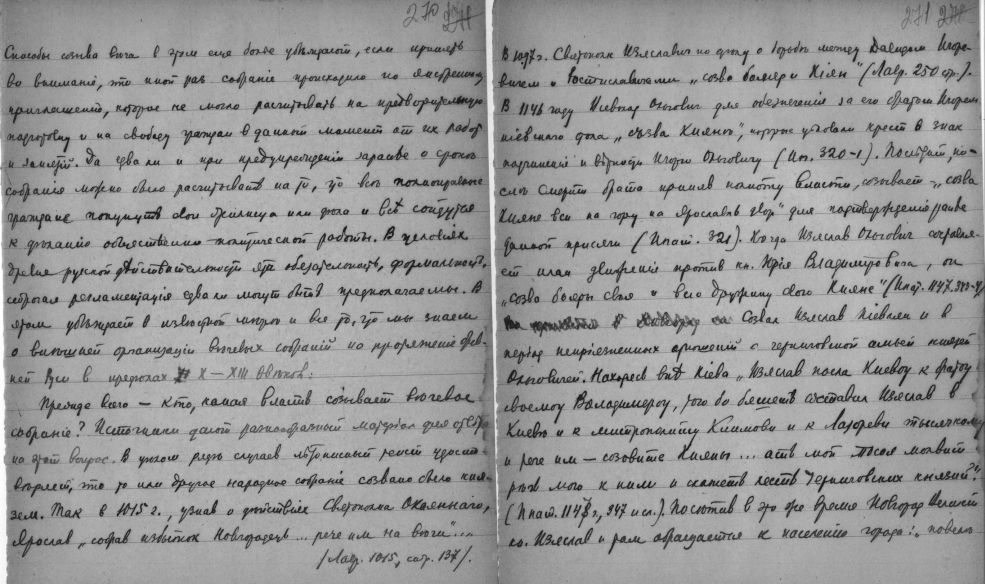 270
Способы созыва веча в этом еще более убеждают, если принять
во внимание, что иной раз собрание происходило по экстренному
приглашению, которое не могло расчитывать на предварительную
подготовку и на свободу граждан в данный момент от их работ
и занятий. Да едва ли и при предупреждении заранее о сроке
собрания можно было расчитывать на то, что все полноправные
граждане покинут свои жилища или дела и все сойдутся
к деланию общественно политической работы. В условиях
древне русской действительности эта обязательность, формальность,
строгая регламентация едва ли могут быть предполагаемы. В
этом убеждает в известной мере и все то, что мы знаем
о внешней организации вечевых собраний на протяжении древ-
ней Руси в пределах X–XIII веков.
Прежде всего – кто, какая власть созывает вечевое
собрание? Источники дают разнообразный материал для ответа
на этот вопрос. В целом ряде случаев летописный текст удосто-
веряет, что то или другое народное собрание созвано было кня-
зем. Так в 1015 г., узнав о действиях Святополка Окаянного,
Ярослав „собрав избыток Новгородец ... рече им на вечи"...
(Лавр. 1015, стр. 137).
271
В 1097 г. Святополк Изяславич по делу о борьбе между Давидом Игоре-
вичем и Ростиславичами „созва боляр и Кіян" (Лавр. 250 стр.).
В 1146 году Всеволод Ольгович для обезпечения за его братом Игорем
киевского стола „съзва Кияны", которые целовали крест в знак
подчинения и верности Игорю Ольговичу (Ип. 320-1). Последний, по-
сле смерти брата приняв полноту власти, созывает – „созва
Кияне вси на гору на Ярославль двор" для подтверждения ранее
данной присяги (Ипат. 321). Когда Изяслав составля-
ет план движения против кн. Юрия Владимировича, он
„созва бояры своя и всю дружину свою Кияне" (Ипат. 1147,
Созвал Изяслав Киевлян и в
период неприязненных отношений с черниговской семьей князей
Ольговичей. Находясь вне Киева „Изяслав посла Киеву к брату
своему Володимеру, того бо бяшеть оставил Изяслав в
Киеве и к митрополиту Климови и к Лазореви тысячкому
и рече им – созовите Кияны ... ать мой посол молвит
речь мою к ним и скажеть лесть Черниговских князий".
(Ипат. 1147 г., 347 и сл.). Посетив в это же время Новгород Великий
кн. Изяслав и там обращается к населению города: „повеле